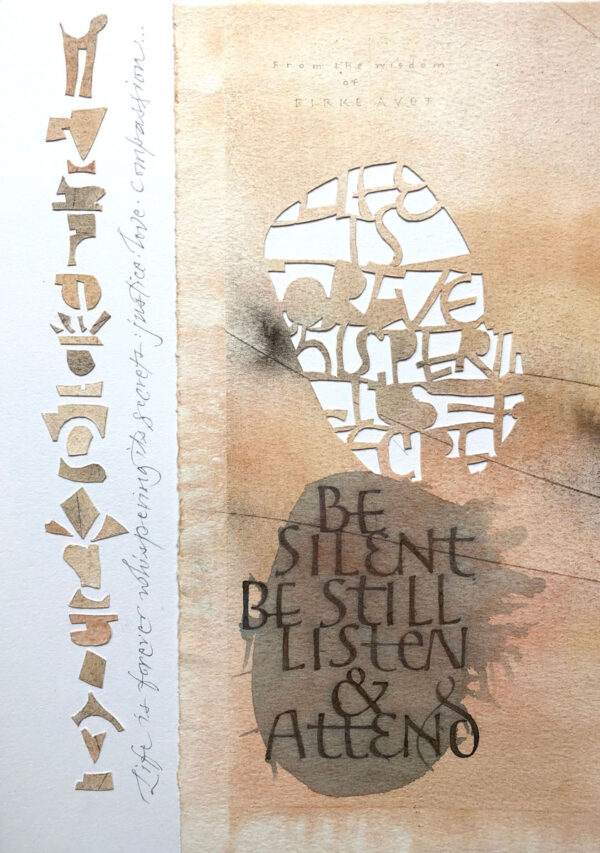 Life is forever whispering its secrets: justice · love · compassion...
From the wisdom
of
PIRKE AVOT
LIFE
IS
WHISPERIN
ITS
BE
SILENT
BE STILL
LISTEN
&
ATTEND